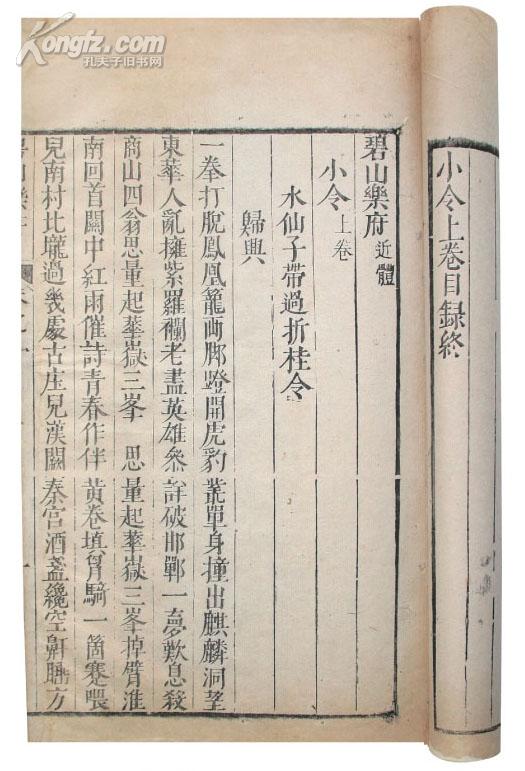 Kongfz.com
孔夫子旧书网
小令上卷目録終
碧山樂府 近體
小令 上卷
水仙子帶過折桂令
歸興
一拳打脫鳳凰籠兩脚蹬開虎豹叢單身撞出麒麟洞望
東華人亂擁紫羅襴老盡英雄參詳破邯鄲一夢歎息殺
商山四翁思量起華嶽三峯 思量起華嶽三峯掉臂淮
南回首關中紅雨催詩青春作伴黃卷填胷騎一箇蹇喂
兒南村北壠過幾處古庄兒漢闕秦宮酒盞纔空鼾睡方